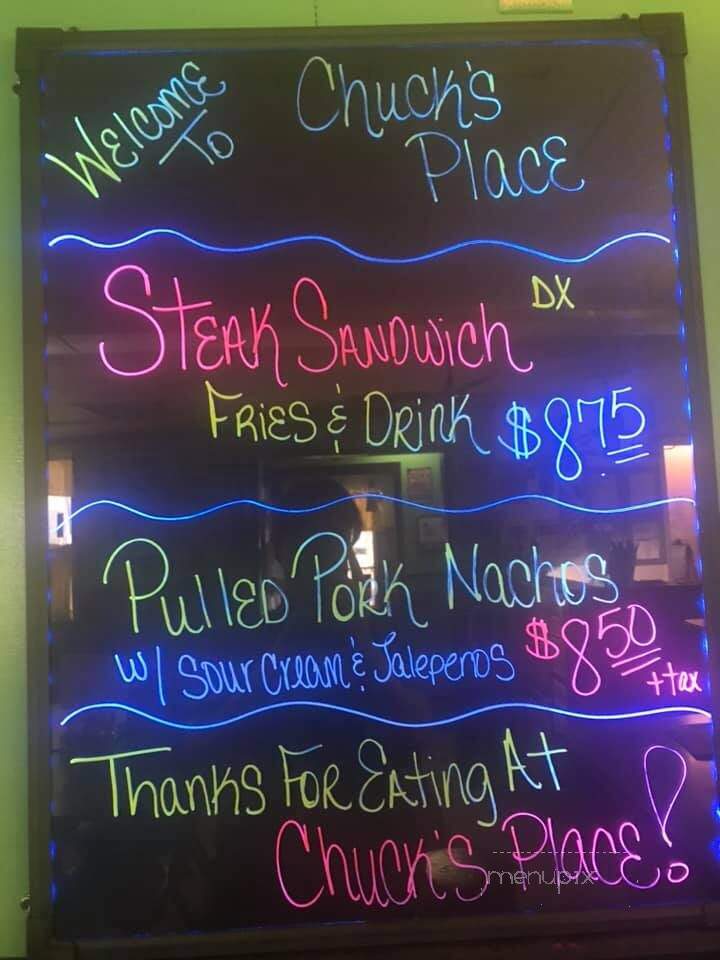 WELCOME TO
Chuck's
Place
STEAK SANDWICH DX
FRIES & DRINK $875
PullED PORK Nachos
w/ Sour Cream & Jalepenos $850
+tax
Thanks FOR EAting At
Chuck's Place!
menupix